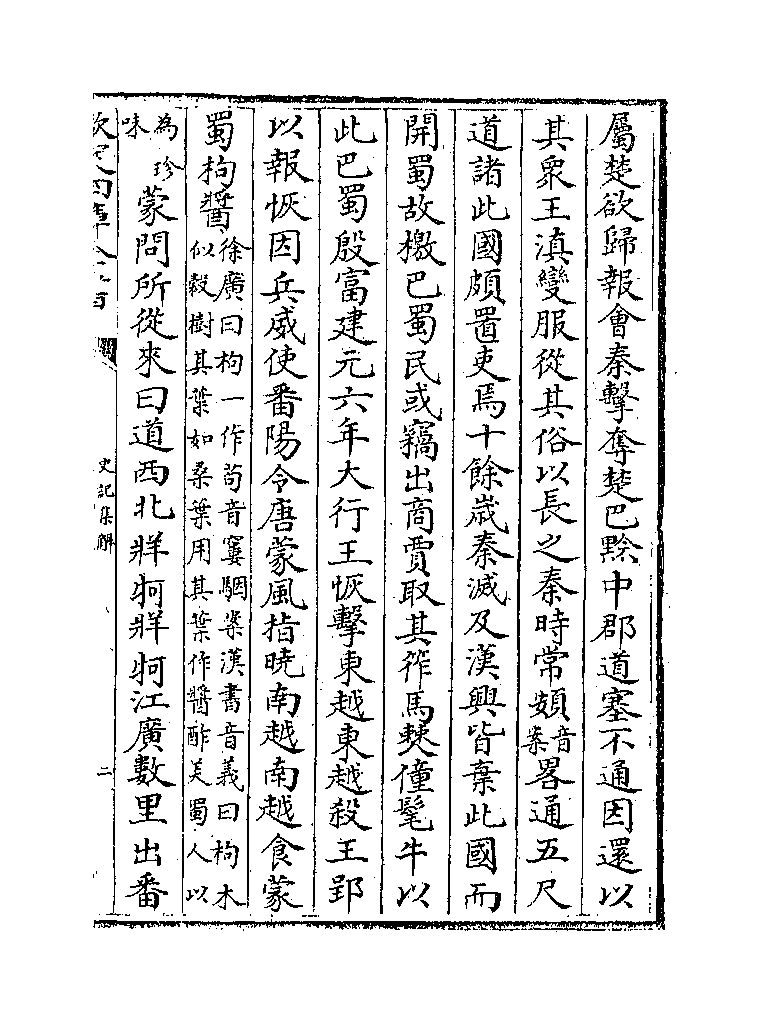 屬楚欲歸報會秦擊奪楚巴黔中郡道塞不通因還以
其衆王滇變服從其俗以長之秦時常頞音案畧通五尺
道諸此國頗置吏焉十餘嵗秦滅及漢興皆棄此國而
開蜀故檄巴蜀民或竊出商賈取其筰馬僰僮髦牛以
此巴蜀殷富建元六年大行王恢擊東越東越殺王郢
以報恢因兵威使番陽令唐蒙風指暁南越南越食蒙
蜀枸醬徐廣曰枸一作茍音窶駰案漢書音義曰枸木似榖樹其葉如桑葉用其葉作醬酢美蜀人以
為珍味蒙問所從來曰道西北牂牁牂牁江廣數里出番
史記集解
二